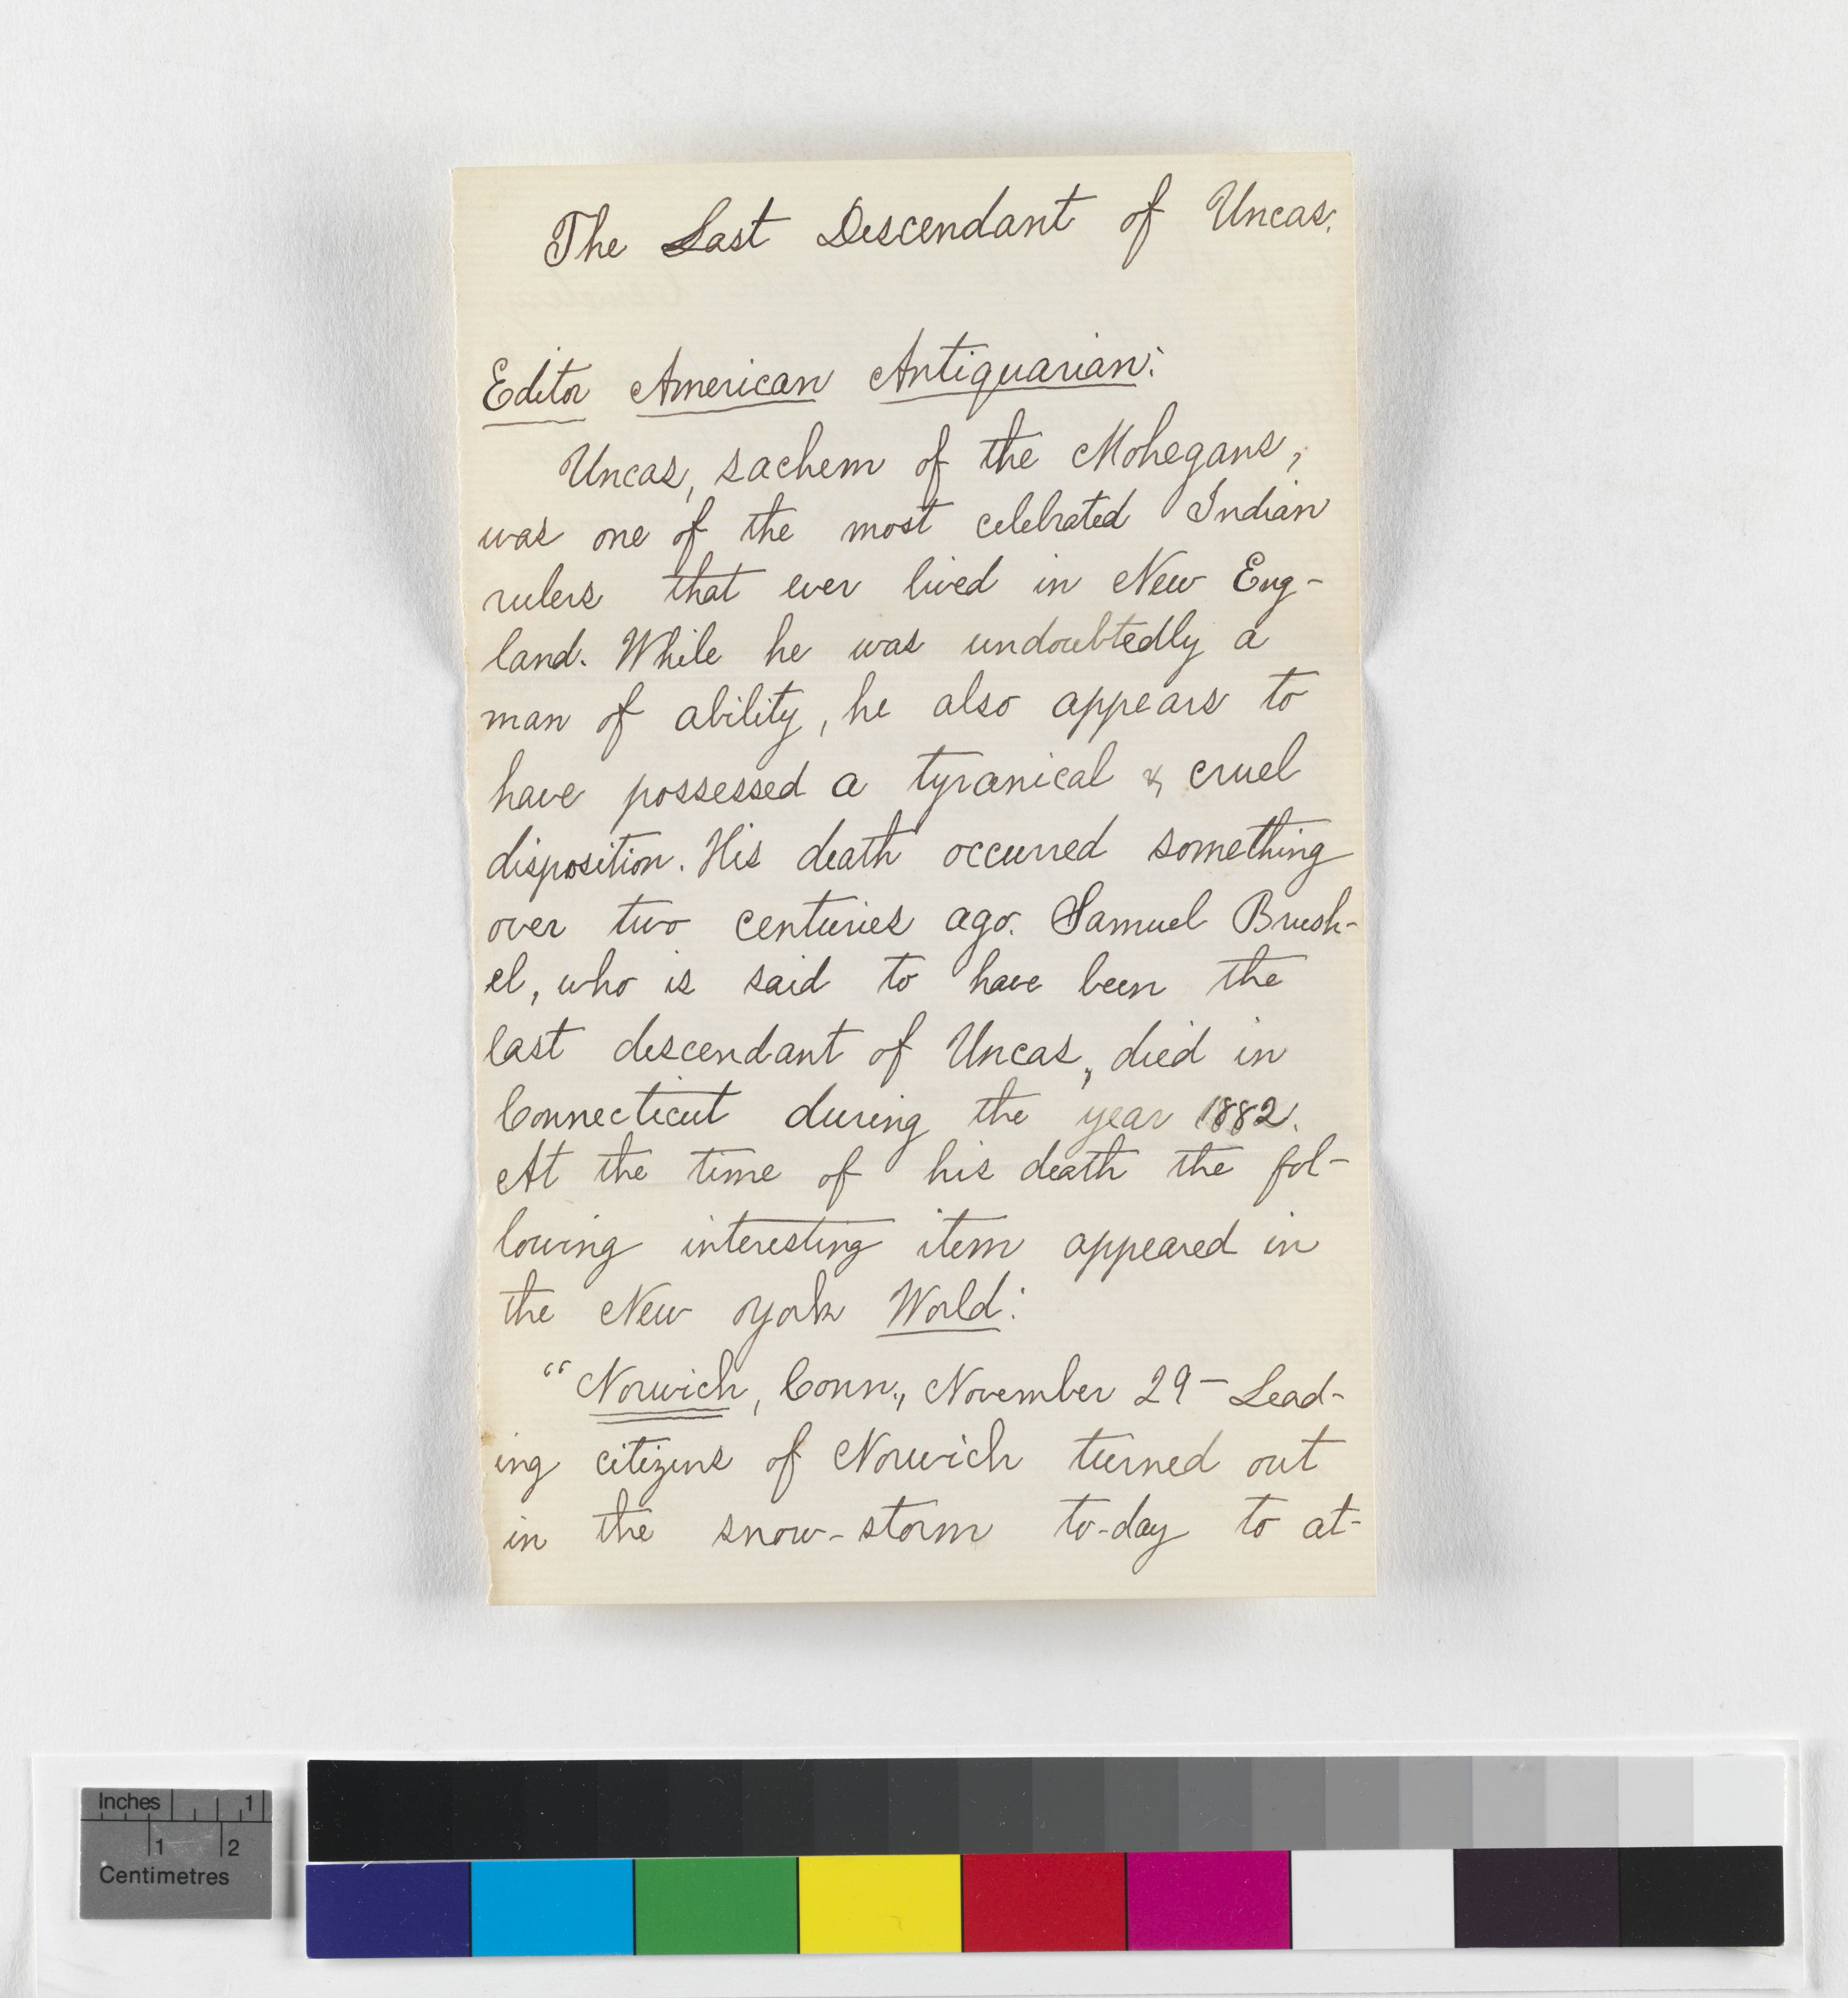 The Last Descendant of Uncas.
Editor American Antiquarian:
Uncas, sachem of the Mohegans,
was one of the most celebrated Indian
rulers that ever lived in New Eng-
land. While he was undoubtedly a
man of ability, he also appears to
have possessed a tyranical & cruel
disposition. His death occurred something
over two centuries ago. Samuel Brush-
el, who is said to have been the
last descendant of Uncas, died in
Connecticut during the year 1882.
At the time of his death the fol-
lowing interesting item appeared in
the New York World:
"Norwich, Conn., November 29 – Lead-
ing citizens of Norwich turned out
in the snow-storm to-day to at-
Inches 1
1 2
Centimetres